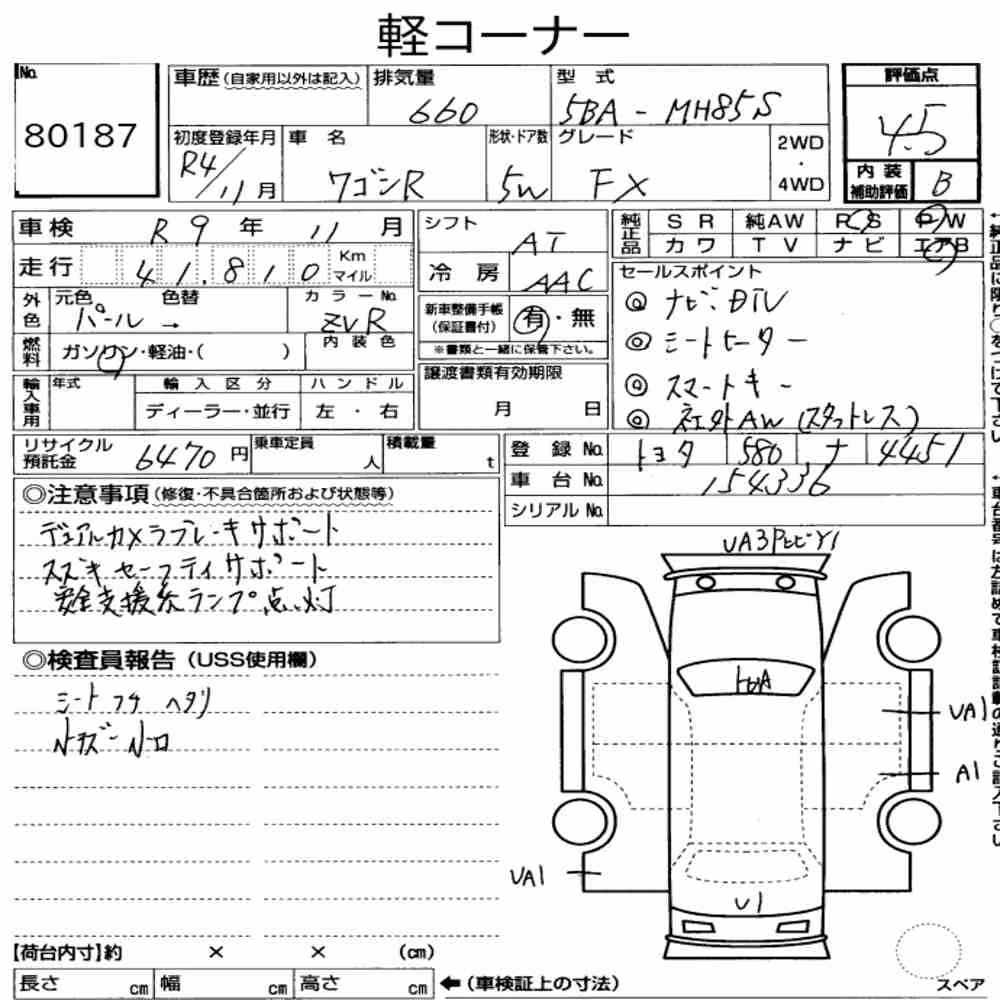 軽コーナー
No.
80187
車歴(自家用以外は記入)
排気量
660
型式
5BA-MH85S
評価点
4.5
初度登録年月
R4/11月
車名
ワゴンR
形状・ドア数
5W
グレード
FX
2WD
・
4WD
内装
補助評価
B
車検 R9年11月
走行 41,810 Km マイル
シフト
AT
冷房
AAC
純正品
SR 純AW PS PW
カワ TV ナビ エアB
外色
元色 色替
パール →
カラーNo.
ZVR
燃料
ガソリン・軽油・( )
内装色
新車整備手帳
(保証書付)
有・無
※書類と一緒に保管下さい。
セールスポイント
◎ ナビ DTV
◎ シートヒーター
◎ スマートキー
◎ 社外AW(スタットレス)
輸入車用
年式
輸入区分
ハンドル
ディーラー・並行
左・右
譲渡書類有効期限
月 日
リサイクル
預託金
6470円
乗車定員
人
積載量
t
登録No.
トヨタ 580 ナ 4451
車台No.
154336
シリアルNo.
◎注意事項(修復・不具合箇所および状態等)
デュアルカメラブレーキサポート
スズキセーフティサポート
安全支援系ランプ点灯
◎検査員報告(USS使用欄)
シート フチ ヘタリ
UA3PヒビY1
トビA
UA1
A1
UA1
U1
【荷台内寸】約 × × (cm)
長さ cm 幅 cm 高さ cm
←(車検証上の寸法)
スペア